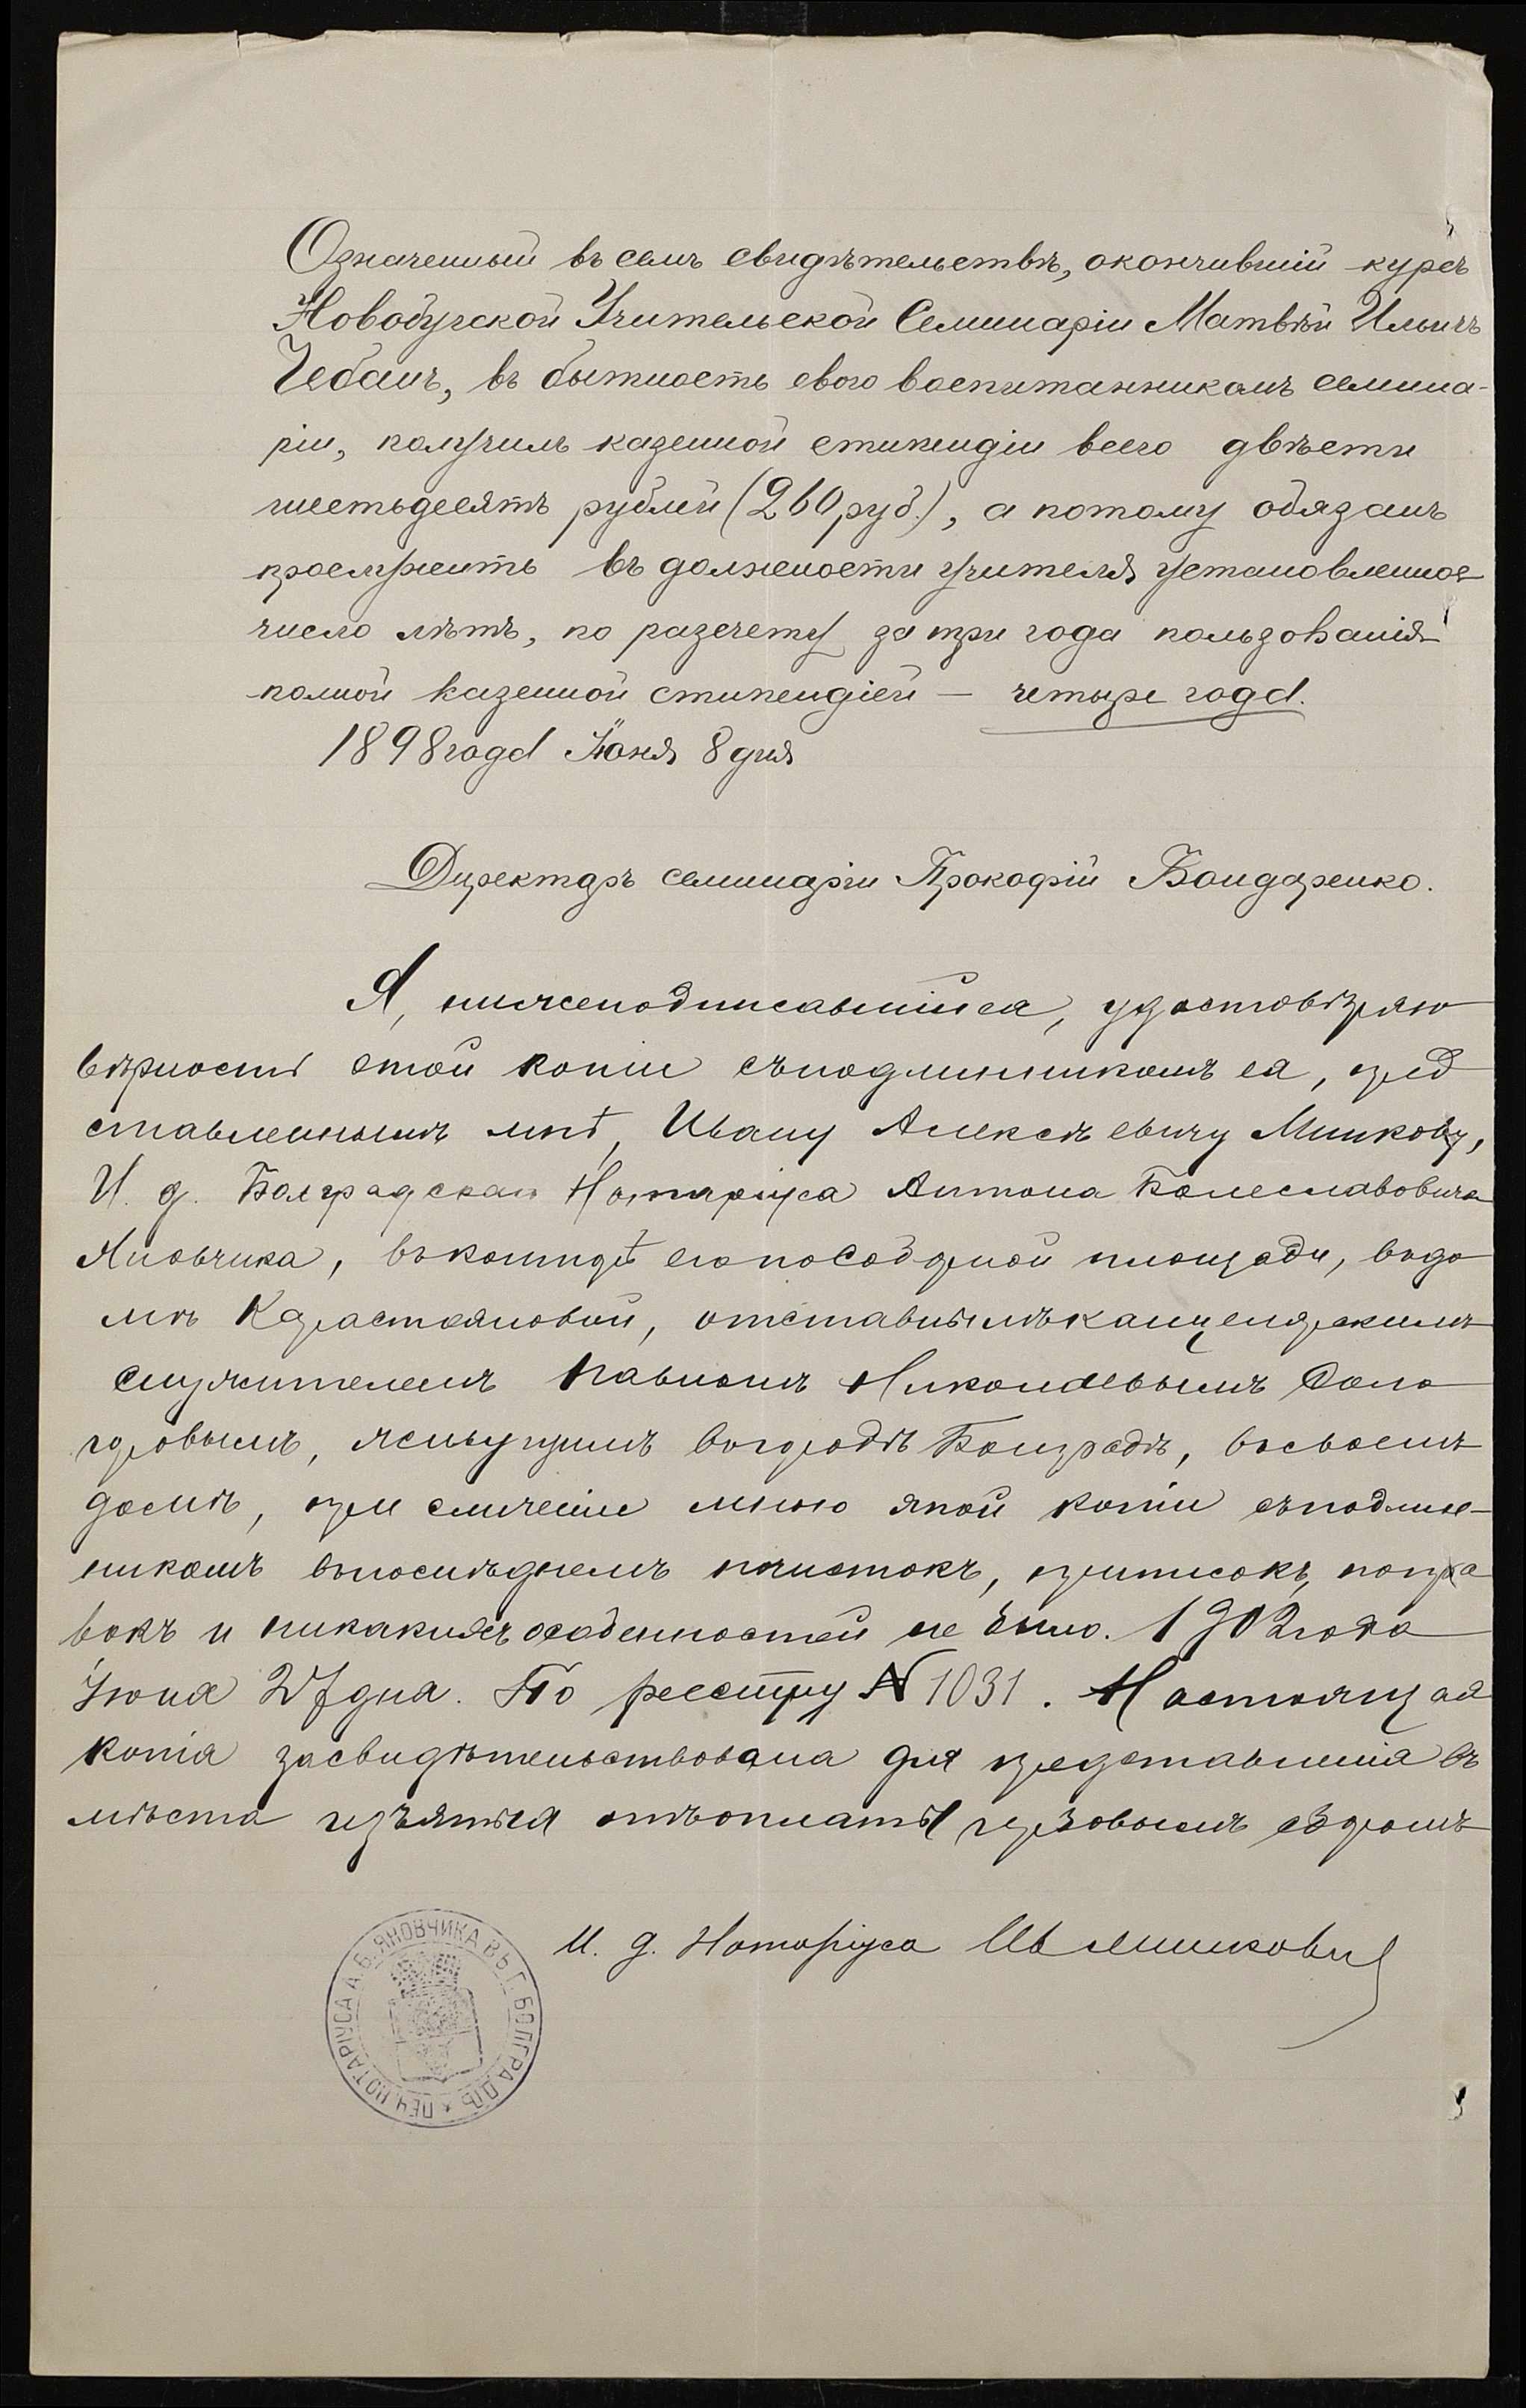 Означенный въ семъ свидѣтельствѣ, окончившій курсъ
Новобугской Учительской Семинаріи Матвѣй Ильичъ
Чебанъ, въ бытность свою воспитанникомъ семина-
ріи, получилъ казенной стипендіи всего двѣсти
шестьдесятъ рублей (260 руб.), а потому обязанъ
прослужить въ должности учителя установленное
число лѣтъ, по разсчету за три года пользованія
полной казенной стипендіей — четыре года.
1898 года Іюня 8 дня
Директоръ семинаріи Прокофій Бондаренко.
Я, нижеподписавшійся, удостовѣряю
вѣрность этой копіи съ подлинникомъ ея, пред
ставленнымъ мнѣ, Ивану Алексѣевичу Минкову,
И. д. Болградскаго Нотаріуса Антона Болеславовича
Яновчика, въ конторѣ его по Соборной площади, въ до
мѣ Карастояновой, отставнымъ канцелярскимъ
служителемъ Павломъ Николаевымъ
живущимъ въ городѣ Болградѣ, въ своемъ
домѣ, при сличеніи мною этой копіи съ подлин-
никомъ въ послѣднемъ почистокъ, приписокъ, попра
вокъ и никакихъ особенностей не было. 1902 года
Іюня 27 дня. По реестру № 1031. Настоящая
копія засвидѣтельствована для представленія въ
мѣста изъятыя отъ оплаты гербовымъ сборомъ
И. д. Нотаріуса Ив Минковъ
ПЕЧ. НОТАРІУСА А. Б. ЯНОВЧИКА ВЪ Г. БОЛГРАДѢ